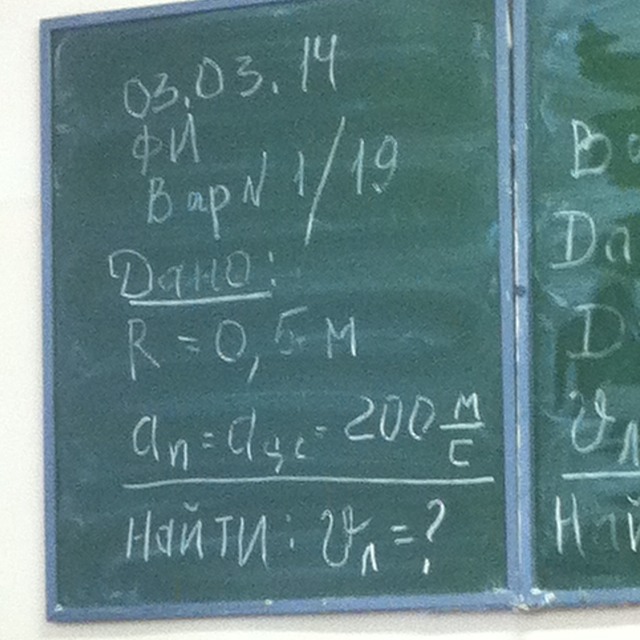 03.03.14
ФИ
Вар N 1/19
Дано:
R = 0,5 м
aп = aцс = 200 м/с
Найти: υл = ?
В
Да
D
υл
Най